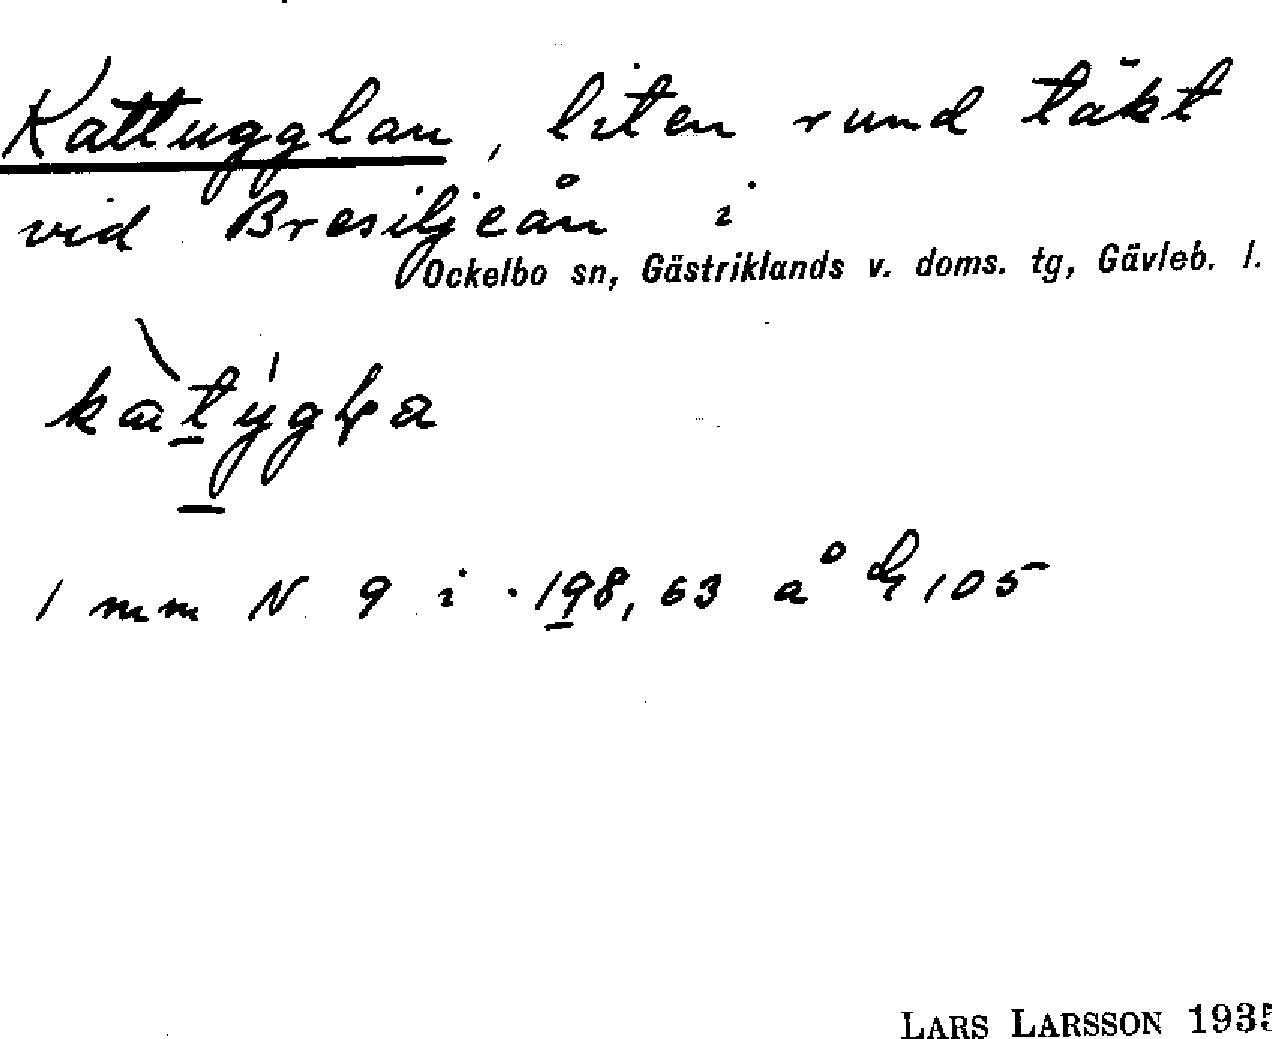 Kattugglan, liten rund täkt
vid Bresiljeån i
Ockelbo sn, Gästriklands v. doms. tg, Gävleb. l.
1 mm N 9 i 198,63 å G 105
LARS LARSSON 1935